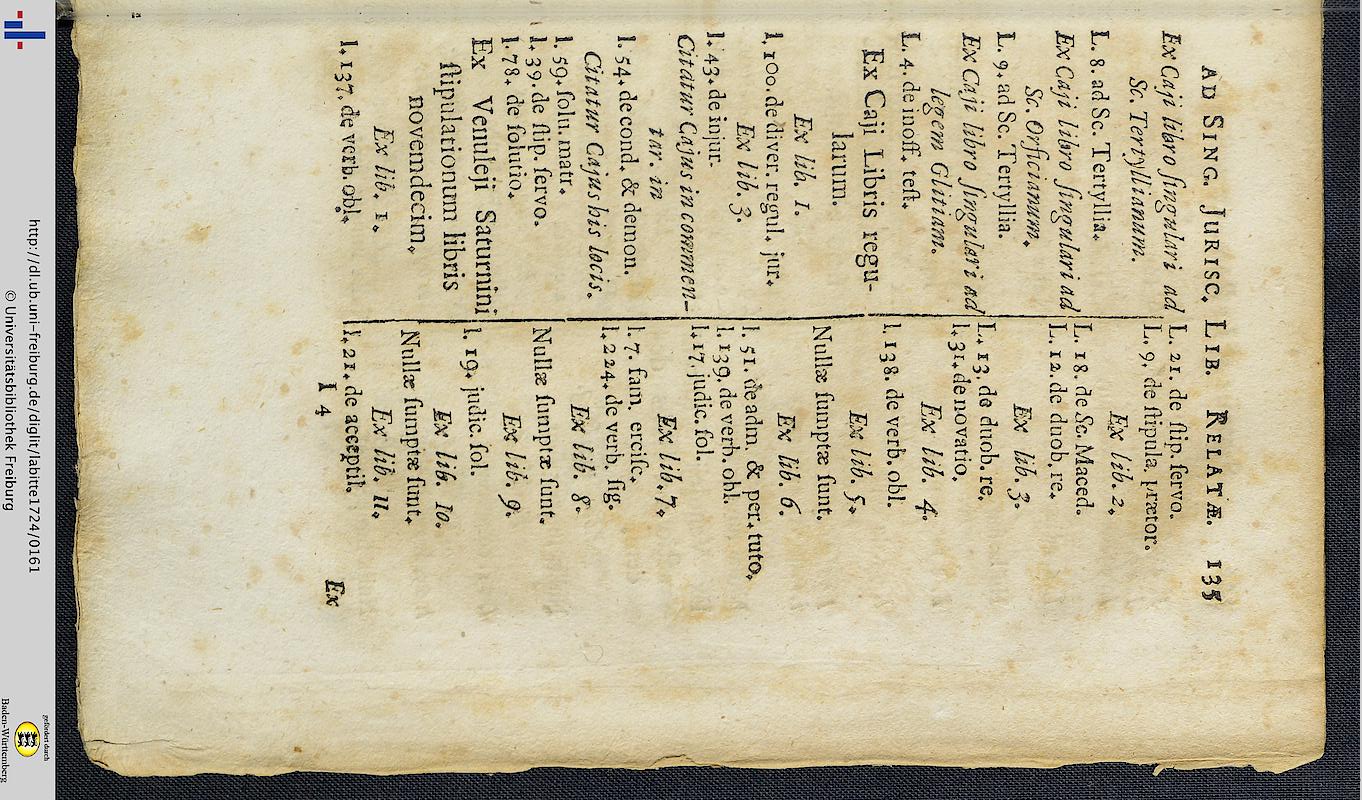 AD SING. JURISC. LIB. RELATÆ. 135
Ex Caji libro ſingulari ad
Sc. Tertyllianum.
L. 8. ad Sc. Tertyllia.
Ex Caji libro ſingulari ad
Sc. Orficianum.
L. 9. ad Sc. Tertyllia.
Ex Caji libro ſingulari ad
legem Glitiam.
L. 4. de inoff. teſt.
Ex Caji Libris regu-
larum.
Ex lib. 1.
l. 100. de diver. regul. jur.
Ex lib. 3.
l. 43. de injur.
Citatur Cajus in commen-
tar. in
l. 54. de cond. & demon.
Citatur Cajus his locis.
l. 59. ſolu. matr.
l. 39. de ſtip. ſervo.
l. 78. de ſolutio.
Ex Venuleji Saturnini
ſtipulationum libris
novemdecim.
Ex lib. 1.
l. 137. de verb. obl.
L. 21. de ſtip. ſervo.
L. 9. de ſtipula. prætor.
Ex lib. 2.
L. 18. de Sc. Maced.
L. 12. de duob. re.
Ex lib. 3.
L. 13. de duob. re.
l. 31. de novatio.
Ex lib. 4.
l. 138. de verb. obl.
Ex lib. 5.
Nullæ ſumptæ ſunt.
Ex lib. 6.
l. 51. de adm. & per. tuto.
l. 139. de verb. obl.
l. 17. judic. ſol.
Ex lib. 7.
l. 7. fam. erciſc.
l. 224. de verb. ſig.
Ex lib. 8.
Nullæ ſumptæ ſunt.
Ex lib. 9.
l. 19. judic. ſol.
Ex lib. 10.
Nullæ ſumptæ ſunt.
Ex lib. 11.
l. 21. de acceptil.
I 4
Ex
http://dl.ub.uni-freiburg.de/diglit/labitte1724/0161
© Universitätsbibliothek Freiburg
gefördert durch
Baden-Württemberg